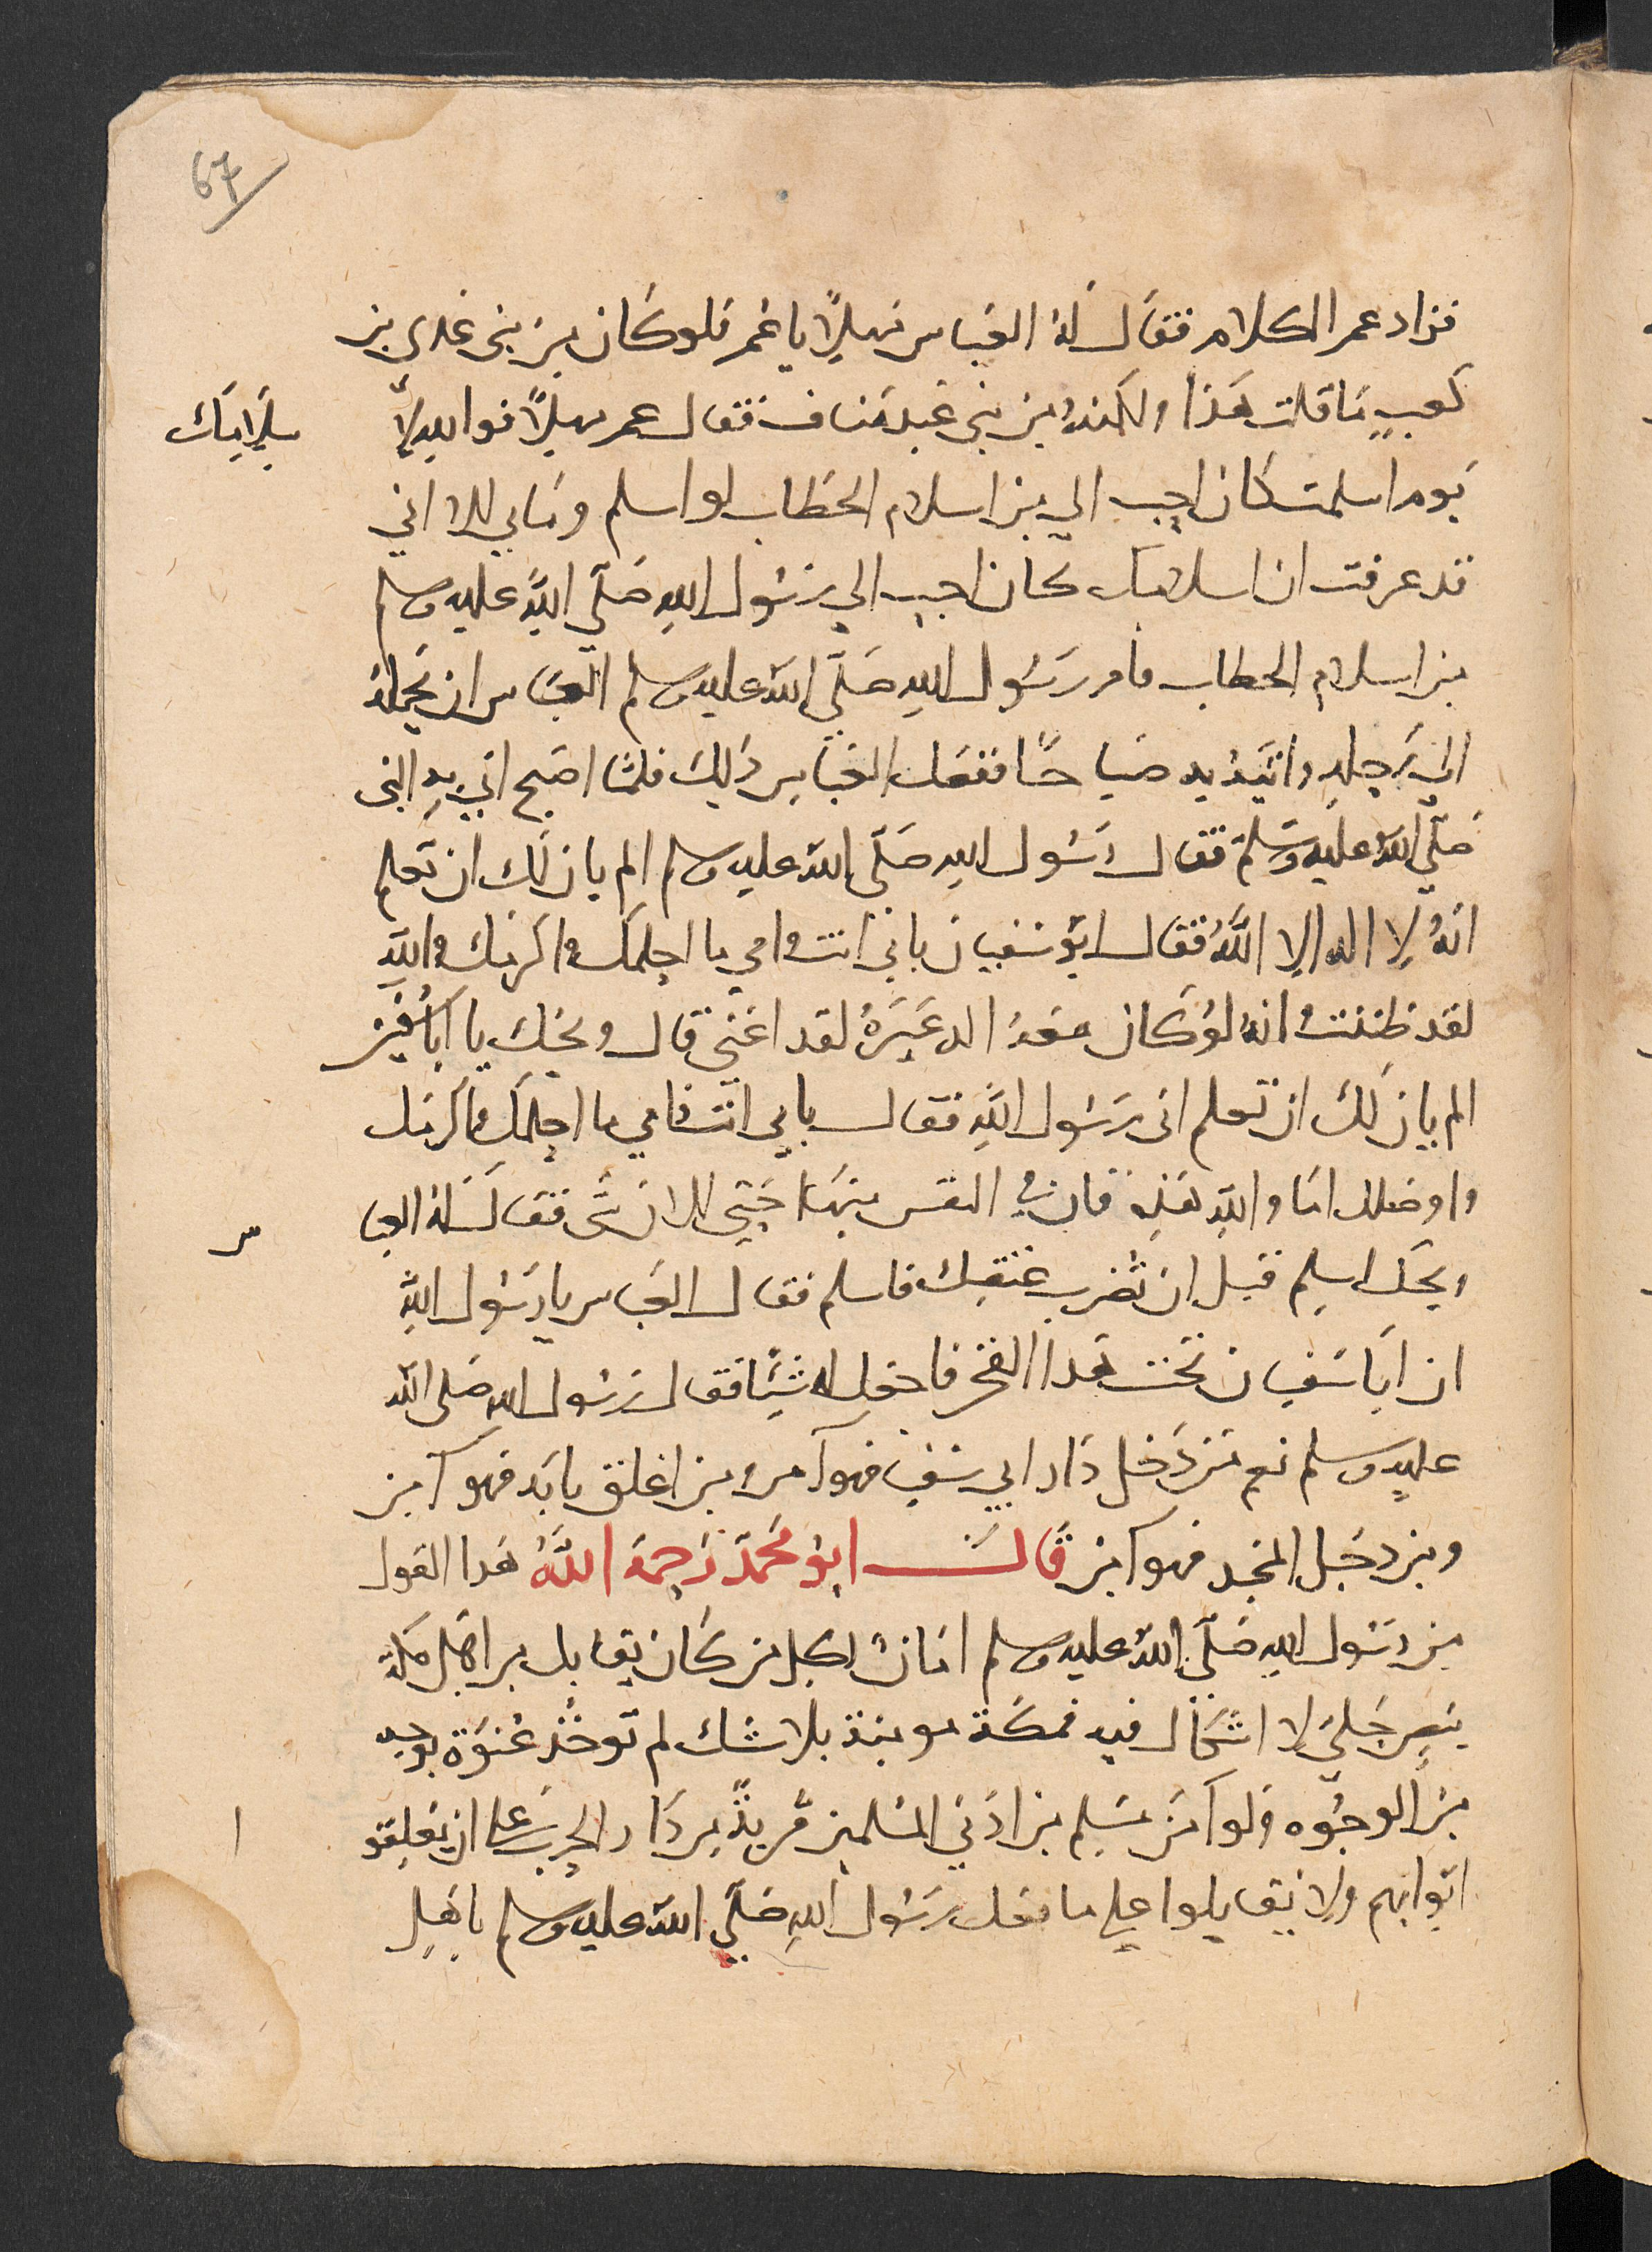 67
فزاد عمر الكلام فقال له العباس مهلًا يا عمر فلو كان من بني عدي بن
كعبٍ ما قلت هذا ولكنه من بني عبد مناف فقال عمر مهلًا فوالله لا سلامك
يوم اسلمت كان احب الي من اسلام الخطاب لو اسلم وما بي الا اني
قد عرفت ان اسلامك كان احب الي رسول الله صلى الله عليه وسلم
من اسلام الخطاب فامر رسول الله صلى الله عليه وسلم العباس ان يحمله
الي رحله وياتيه به صباحًا ففعل العباس ذلك فلما اصبح اتي به النبي
صلى الله عليه وسلم فقال رسول الله صلى الله عليه وسلم الم يان لك ان تعلم
انه لا اله الا الله فقال ابو سفيان بابي انت وامي ما احلمك واكرمك والله
لقد ظننت انه لو كان معه اله غيره لقد اغني قال ويحك يا ابا سفين
الم يان لك ان تعلم اني رسول الله فقال بابي انت وامي ما احلمك واكرمك
واوصلك اما والله هذه فان في النفس منها حتي الان شي فقال له العباس
ويحك اسلم قبل ان تضرب عنقك فاسلم فقال العباس يا رسول الله
ان ابا سفيان يحب هذا الفخر فاجعل له شيًا فقال رسول الله صلى الله
عليه وسلم نعم من دخل دار ابي سفين فهو آمن ومن اغلق بابه فهو آمن
ومن دخل المسجد فهو آمن قال ابو محمد رحمه الله هذا القول
من رسول الله صلى الله عليه وسلم امان لكل من كان يقابل من اهل مكة
بنص جلي لا اشكال فيه فمكة مومنة بلا شك لم توخذ عنوة بوجه
من الوجوه ولو امن مسلم من ادني المسلمين قرية من دار الحرب علي ان يغلقوا
ابوابهم ولا يقابلوا علي ما فعل رسول الله صلى الله عليه وسلم باهل